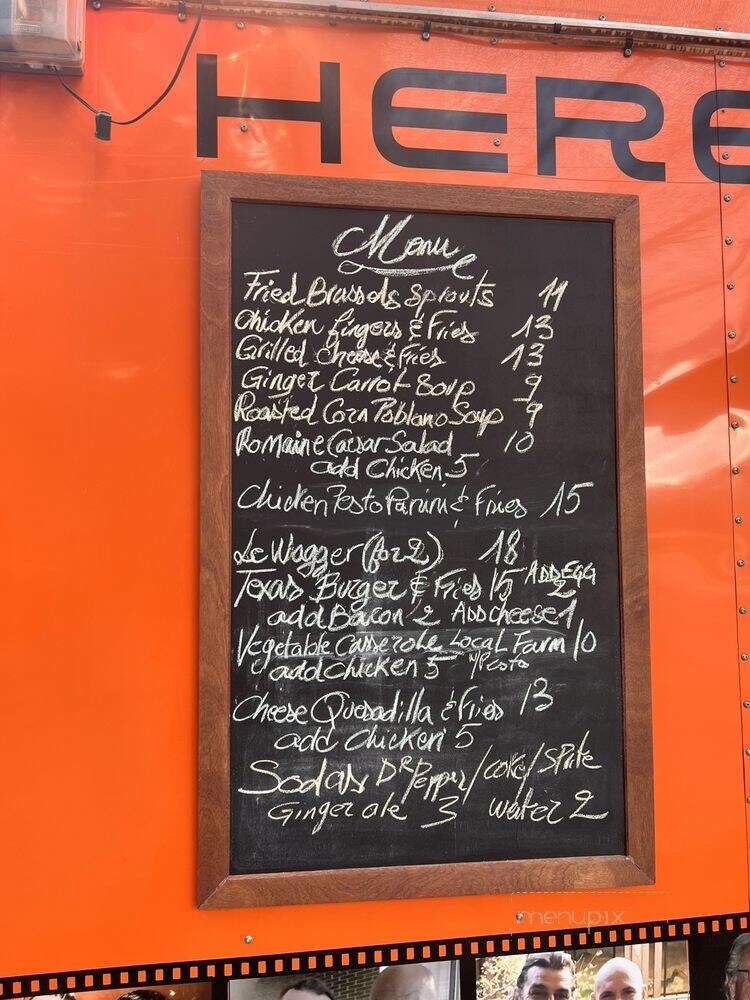 HERE
Menu
Fried Brussels Sprouts 11
Chicken fingers & Fries 13
Grilled cheese & fries 13
Ginger Carrot Soup 9
Roasted Corn Poblano Soup 9
Romaine Caesar Salad 10
add Chicken 5
Chicken Pesto Panini & Fries 15
Le Wagger (for 2) 18
Texas Burger & Fries 15 ADD EGG 2
add Bacon 2 ADD cheese 1
Vegetable Casserole Local Farm 10
add chicken 5 w/Pesto
Cheese Quesadilla & Fries 13
add Chicken 5
Sodas DR Pepper/coke/Sprite
Ginger ale 3 water 2
menupix